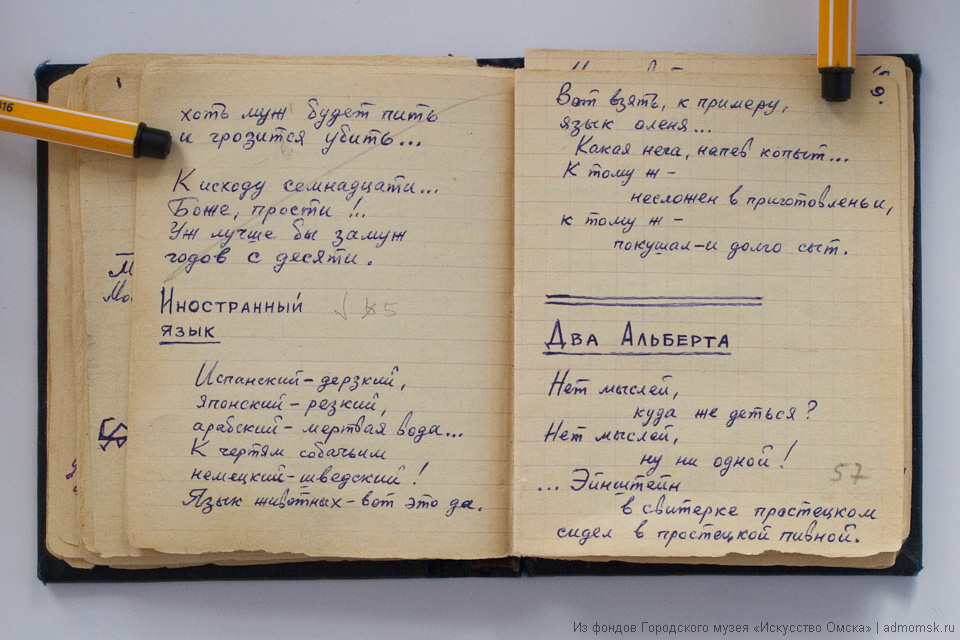 хоть муж будет пить
и грозится убить...
К исходу семнадцати...
Боже, прости!..
Уж лучше бы замуж
годов с десяти.
Иностранный
язык
5
Испанский – дерзкий,
японский – резкий,
арабский – мертвая вода...
К чертям собачьим
немецкий-шведский!
Язык животных – вот это да.
Вот взять, к примеру,
язык оленя...
Какая нега, напев копыт...
К тому ж –
несложен в приготовленьи,
к тому ж –
покушал – и долго сыт.
Два Альберта
Нет мыслей,
куда же деться?
Нет мыслей,
ну ни одной!
... Эйнштейн
в свитерке простецком
сидел в простецкой пивной.
57
Из фондов Городского музея «Искусство Омска» | admomsk.ru